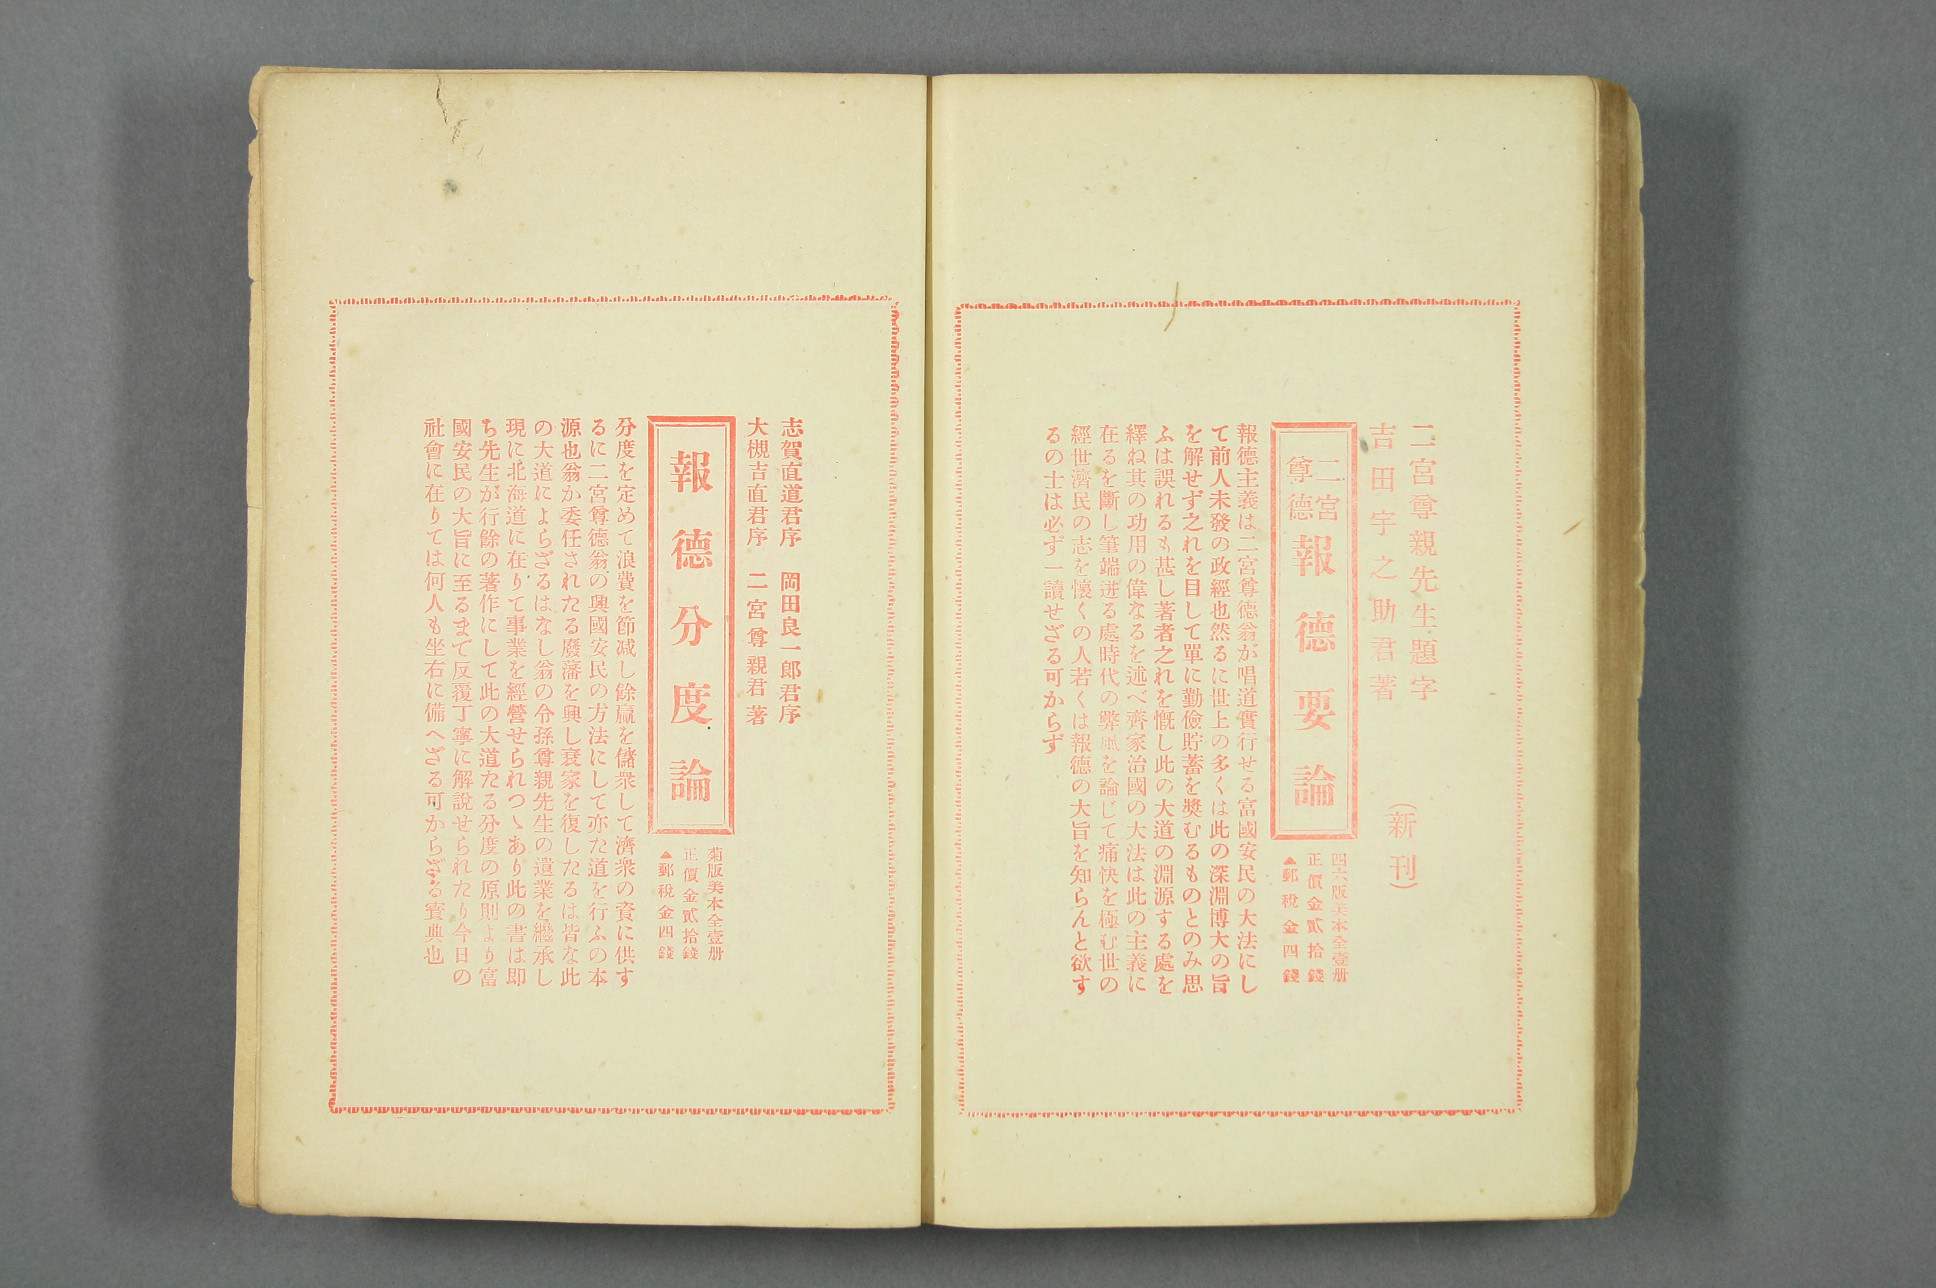 二宮尊親先生題字
吉田宇之助君著
（新刊）
二宮尊德
報德要論
四六版美本全壹册
正價金貳拾錢
▲郵稅金四錢
報德主義は二宮尊德翁が唱道實行せる富國安民の大法にし
て前人未發の政經也然るに世上の多くは此の深淵博大の旨
を解せず之れを目して單に勤儉貯蓄を奬むるものとのみ思
ふは誤れるも甚し著者之れを慨し此の大道の淵源する處を
繹ね其の功用の偉なるを述べ齊家治國の大法は此の主義に
在るを斷し筆端迸る處時代の弊風を論じて痛快を極む世の
經世濟民の志を懷くの人若くは報德の大旨を知らんと欲す
るの士は必ず一讀せざる可からず
志賀直道君序　岡田良一郎君序
大槻吉直君序　二宮尊親君著
報德分度論
菊版美本全壹册
正價金貳拾錢
▲郵稅金四錢
分度を定めて浪費を節减し餘贏を儲衆して濟衆の資に供す
るに二宮尊德翁の興國安民の方法にして亦た道を行ふの本
源也翁か委任されたる廢藩を興し衰家を復したるは皆な此
の大道によらざるはなし翁の令孫尊親先生の遺業を繼承し
現に北海道に在りて事業を經營せられつゝあり此の書は即
ち先生が行餘の著作にして此の大道たる分度の原則より富
國安民の大旨に至るまで反覆丁寧に解說せられたり今日の
社會に在りては何人も坐右に備へざる可からざる寳典也